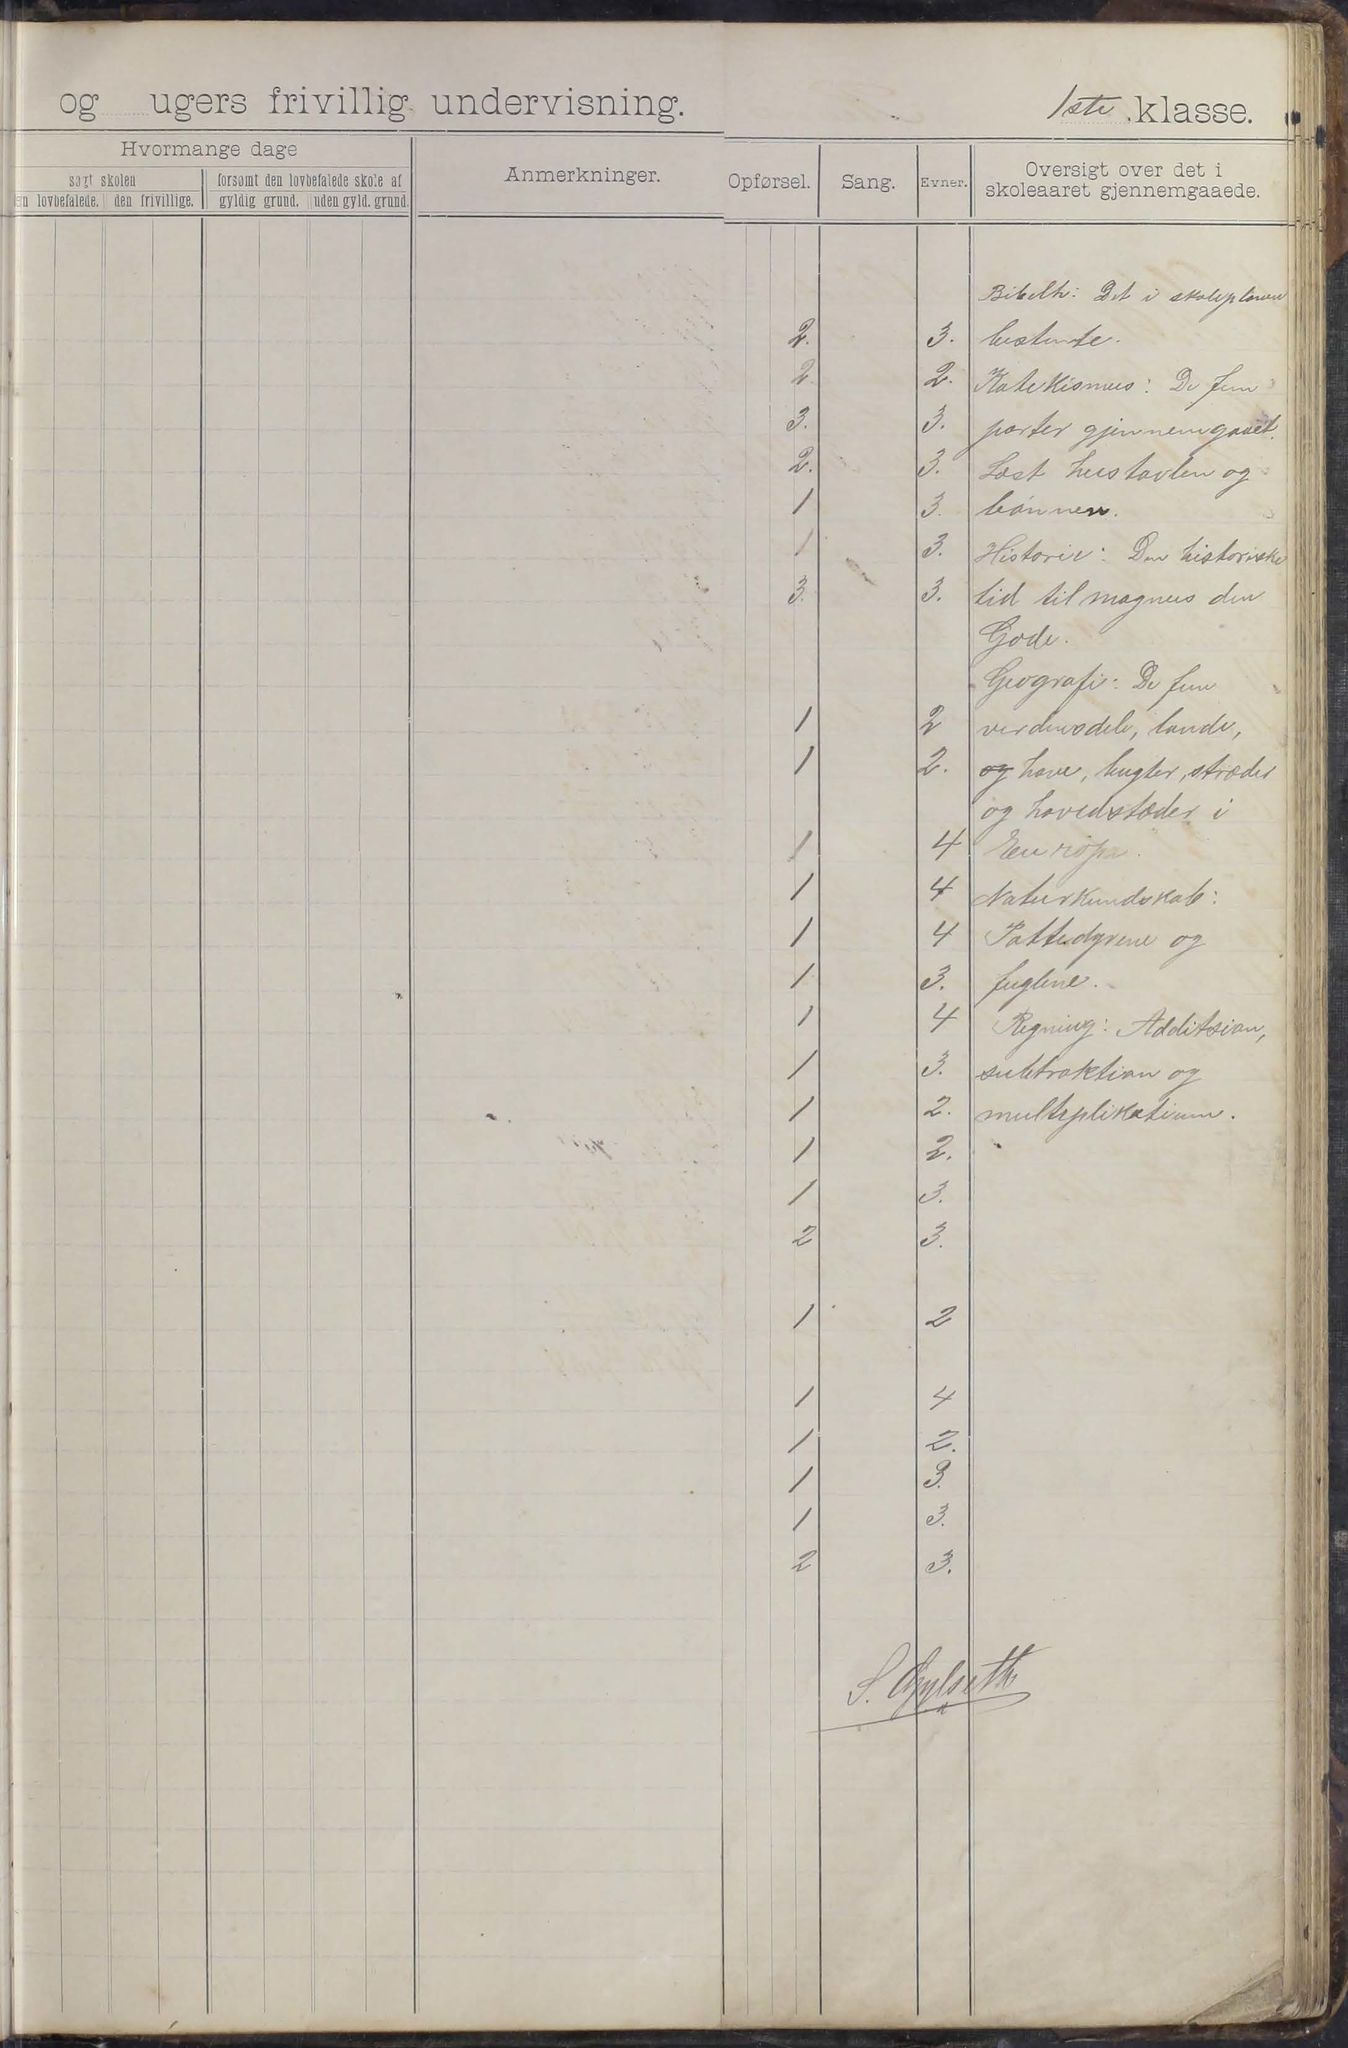 og ugers frivillig undervisning. 1ste klasse.
Hvormange dage
søgt skolen
forsømt den lovbefalede skole af
en lovbefalede. den frivillige. gyldig grund. uden gyld. grund.
Anmerkninger.
Opførsel. Sang. Evner.
Oversigt over det i
skoleaaret gjennemgaaede.
Bibelh: Det i skoleplanen
2. 3. bestemte.
2 2. Katekismus: De fem
3. 3. parter gjennemgaaet.
2. 3. Læst hustavlen og
1 3. bønnen.
1 3. Historie: Den historiske
3. 3. tid til magnus den
Gode.
Geografi: De fem
1 2 verdensdele, lande,
1 2. og have, bugter, stræder
og hovedstæder i
1 4 Europa.
1 4 Naturkundskab:
1 4 Pattedyrene og
1 3. fuglene.
1 4 Regning: Additsion,
1 3. subtraktion og
1 2. multiplikation.
1 2.
1 3.
2 3.
1 2
1 4
1 2.
1 3.
1 3.
2 3.
S. Gylseth